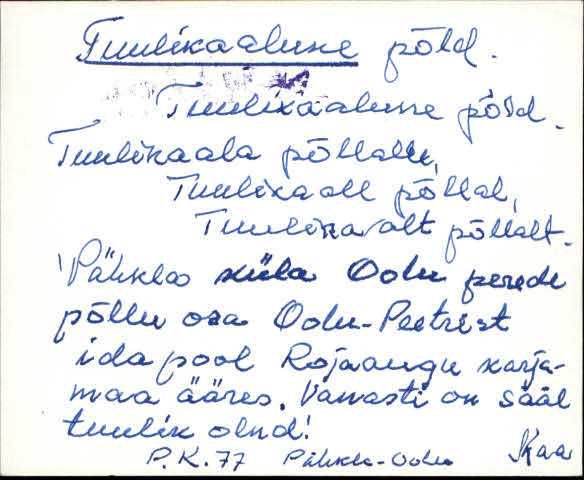 Tuulikaalune põld.
Tuulikaalune põld.
Tuulikaala põllalle,
Tuulikaall põllal,
Tuulikaalt põllalt.
Pähkla küla Oolu perede
põllu osa Oolu-Peetrist
ida pool Rojaaugu karja-
maa ääres. Vanasti on sääl
tuulik olnd!
P.K.77 Pähkla-Oolu Kaa